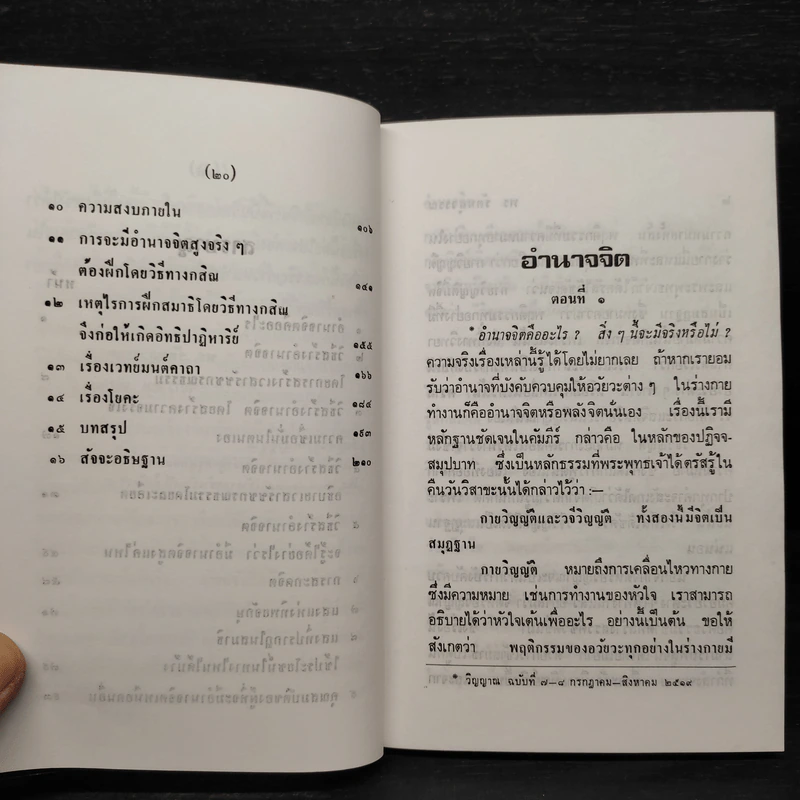 (๒๐)
๑๐ ความสงบภายใน ๑๐๖
๑๑ การจะมีอำนาจจิตสูงจริง ๆ
ต้องฝึกโดยวิธีทางกสิณ ๑๔๑
๑๒ เหตุไรการฝึกสมาธิโดยวิธีทางกสิณ
จึงก่อให้เกิดอิทธิปาฏิหาริย์ ๑๕๕
๑๓ เรื่องเวทย์มนต์คาถา ๑๖๖
๑๔ เรื่องโยคะ ๑๘๔
๑๕ บทสรุป ๑๙๓
๑๖ สัจจะอธิษฐาน ๒๑๐
อำนาจจิต
ตอนที่ ๑
* อำนาจจิตคืออะไร ? สิ่ง ๆ นี้จะมีจริงหรือไม่ ?
ความจริงเรื่องเหล่านี้รู้ได้โดยไม่ยากเลย ถ้าหากเรายอม
รับว่าอำนาจที่บังคับควบคุมให้อวัยวะต่าง ๆ ในร่างกาย
ทำงานก็คืออำนาจจิตหรือพลังจิตนั่นเอง เรื่องนี้เรามี
หลักฐานชัดเจนในคัมภีร์ กล่าวคือ ในหลักของปฏิจจ-
สมุปบาท ซึ่งเป็นหลักธรรมที่พระพุทธเจ้าได้ตรัสรู้ใน
คืนวันวิสาขะนั้นได้กล่าวไว้ว่า :—
กายวิญญัติและวจีวิญญัติ ทั้งสองนี้มีจิตเป็น
สมุฏฐาน
กายวิญญัติ หมายถึงการเคลื่อนไหวทางกาย
ซึ่งมีความหมาย เช่นการทำงานของหัวใจ เราสามารถ
อธิบายได้ว่าหัวใจเต้นเพื่ออะไร อย่างนี้เป็นต้น ขอให้
สังเกตว่า พฤติกรรมของอวัยวะทุกอย่างในร่างกายมี
* วิญญาณ ฉบับที่ ๗–๘ กรกฎาคม–สิงหาคม ๒๕๑๙